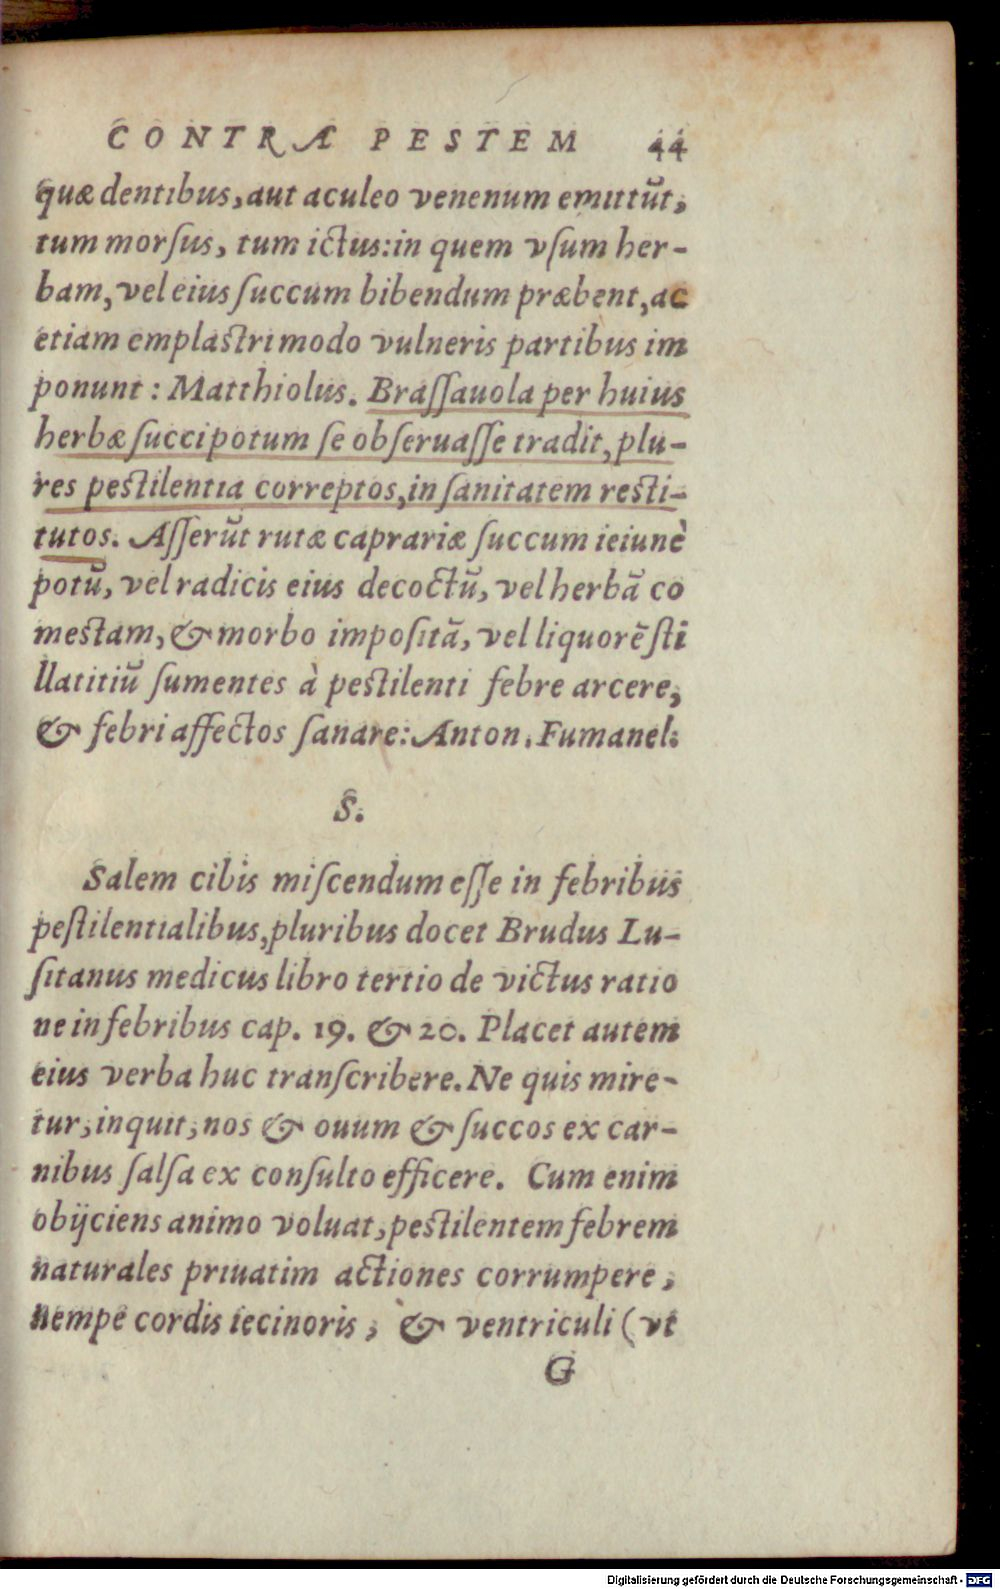 CONTRA PESTEM 44
quæ dentibus, aut aculeo venenum emittūt,
tum morsus, tum ictus: in quem vsum her-
bam, vel eius succum bibendum præbent, ac
etiam emplastri modo vulneris partibus im
ponunt : Matthiolus. Brassauola per huius
herbæ succi potum se obseruasse tradit, plu-
res pestilentia correptos, in sanitatem resti-
tutos. Asserūt rutæ caprariæ succum ieiunè
potū, vel radicis eius decoctū, vel herbā co
mestam, & morbo impositā, vel liquorē sti
llatitiū sumentes à pestilenti febre arcere,
& febri affectos sanare: Anton. Fumanel.
S.
Salem cibis miscendum esse in febribus
pestilentialibus, pluribus docet Brudus Lu-
sitanus medicus libro tertio de victus ratio
ne in febribus cap. 19. & 20. Placet autem
eius verba huc transcribere. Ne quis mire-
tur, inquit, nos & ouum & succos ex car-
nibus salsa ex consulto efficere. Cum enim
obijciens animo voluat, pestilentem febrem
naturales priuatim actiones corrumpere,
nempe cordis iecinoris, & ventriculi (vt
G
Digitalisierung gefördert durch die Deutsche Forschungsgemeinschaft - DFG